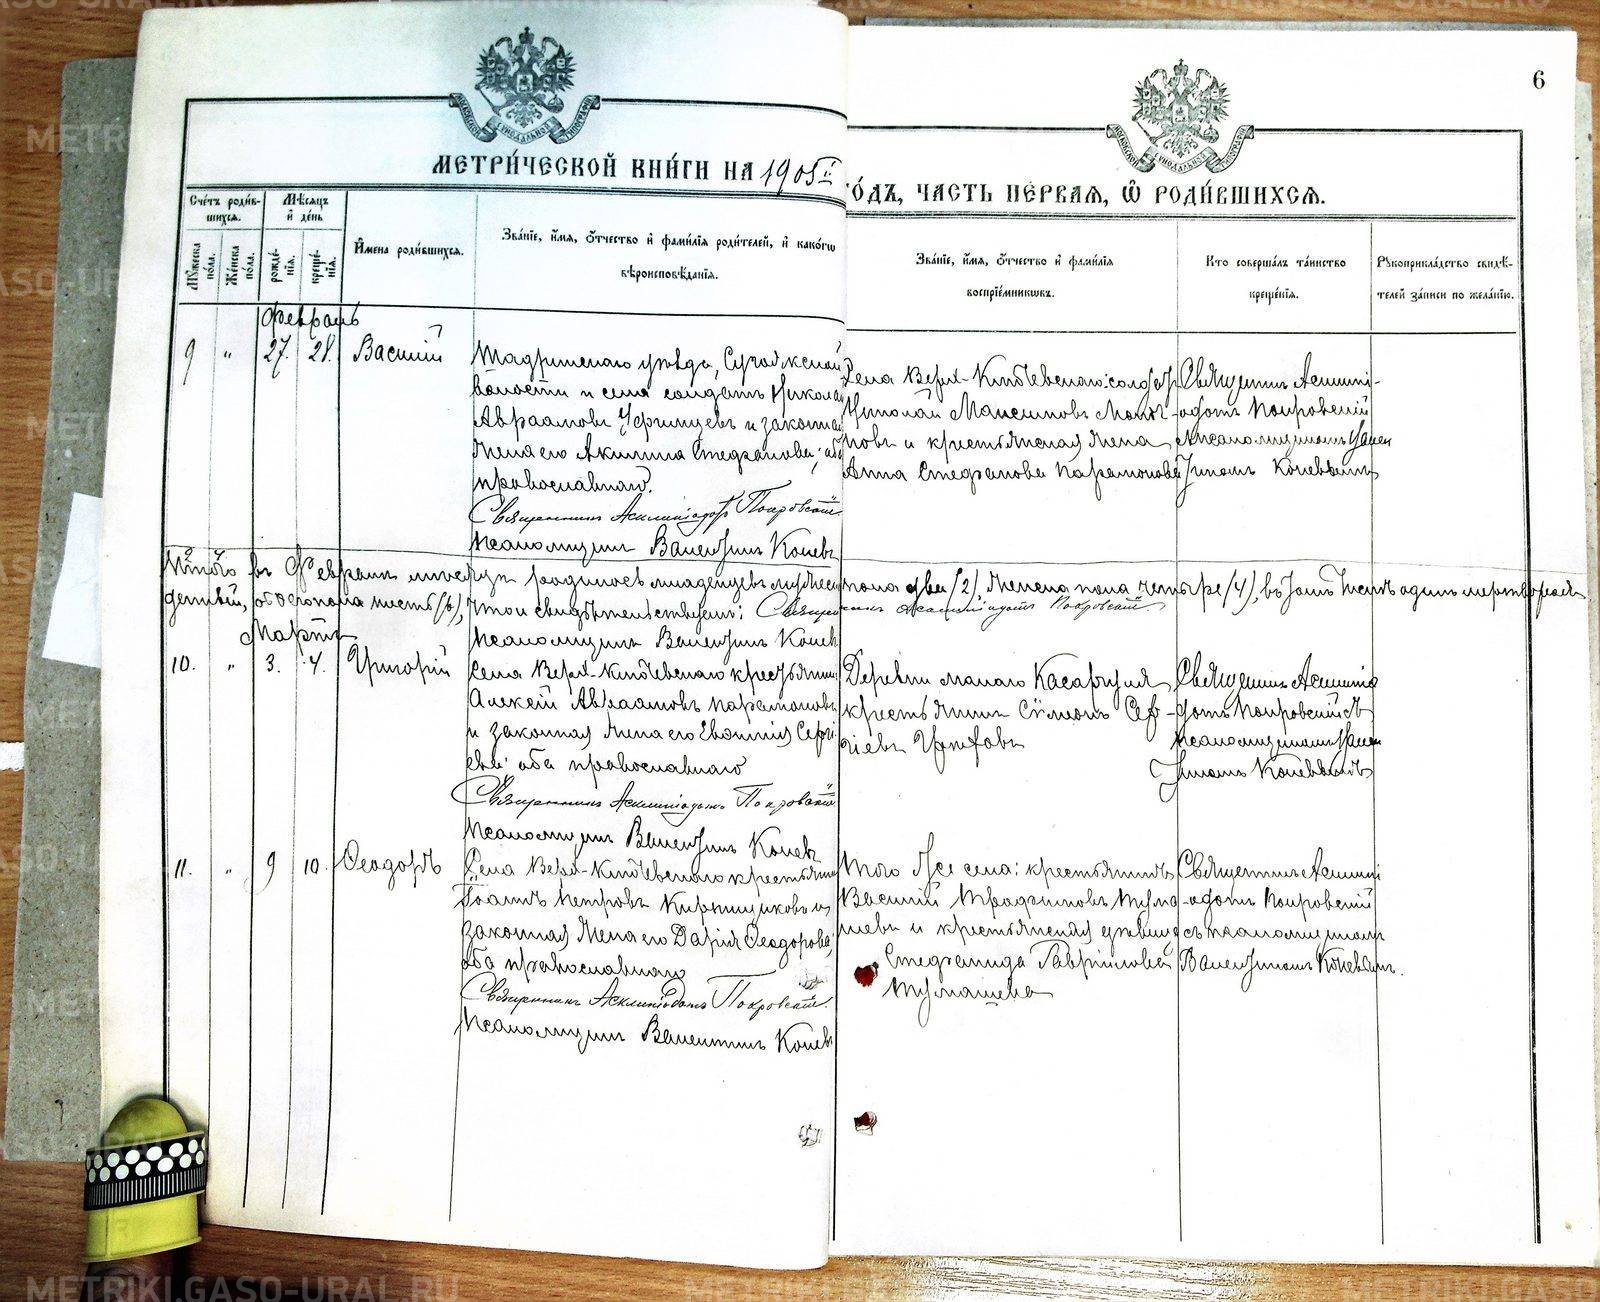 6
МЕТРИ́ЧЕСКОЙ КНИ́ГИ НА 1905й
ГО́ДЪ, ЧАСТЬ ПЕ́РВАЯ, Ѿ РОДИ́ВШИХСЯ.
Сче́тъ роди́в-
шихся.
Мѣ́сяцъ
и де́нь
Му́жеска по́ла.
Же́нска по́ла.
рожде́-
нїя.
креще́-
нїя.
И҆мена роди́вшихся.
Зва́нїе, и҆́мя, ѻ҆́тчество и҆ фами́лїя роди́телей, и҆ како́гѡ
вѣроисповѣ́данїя.
Зва́нїе, и҆́мя, ѻ҆́тчество и҆ фами́лїя
воспрїе́мникѡвъ.
Кто̀ соверша́лъ та́инство
креще́нїя.
Рукоприкла́дство свидѣ́-
телей за́писи по жела́нїю.
Февраль
9 " 27. 28. Василій
Шадринскаго уѣзда,
волости и села солдатъ Никола
Авраамовъ Уфимцевъ и законна
жена его Акилина Стефанова; об
православнаго.
Священникъ Асклипіодотъ Покровскій
Псаломщикъ Валентинъ Коневъ
Села Верх-Ключевскаго: солдат
Николай Максимовъ
новъ и крестьянская жена
Анна Стефанова Парамонова
Священникъ Асклипі-
одотъ Покровскій
съ псаломщикомъ Вален
тиномъ Коневымъ
Итого въ Февралѣ мѣсяцѣ родилось младенцевъ мужеска пола два (2), женска пола четыре (4), въ томъ числѣ одинъ мертворожд
обоего пола шесть (6), что и свидѣтельствуемъ: Священникъ Асклипіодотъ Покровскій
Псаломщикъ Валентинъ Конев
Мартъ
10. " 3. 4. Григорій
Села Верх-Ключевскаго крестьянин
Алексій Авраамовъ Парамоновъ
и законная жена его Евѳимія Серги
ева оба православнаго
Священникъ Асклипіодотъ Покровскій
Псаломщикъ Валентинъ Коневъ
Деревни малаго Касаргуля
крестьянинъ Сѵмеонъ Сер-
гіевъ
Священникъ Асклипіо
дотъ Покровскій съ
псаломщикомъ Вален
тиномъ Коневымъ
11. " 9 10. Ѳеодоръ
Села Верх-Ключевскаго крестьяни
Іоаннъ Петровъ Кирпищиковъ и
законная жена его Дарія Ѳеодорова,
оба православнаго
Священникъ Асклипіодотъ Покровскій
Псаломщикъ Валентинъ Коневъ
Того же села: крестьянинъ
Василій Трофимовъ Тума
шевъ и крестьянская дѣвица
Стефанида Гавріилова
Тумашева
Священникъ Асклипі
одотъ Покровскій
съ псаломщикомъ
Валентиномъ Коневымъ.
METRIKI.GASO-URAL.RU